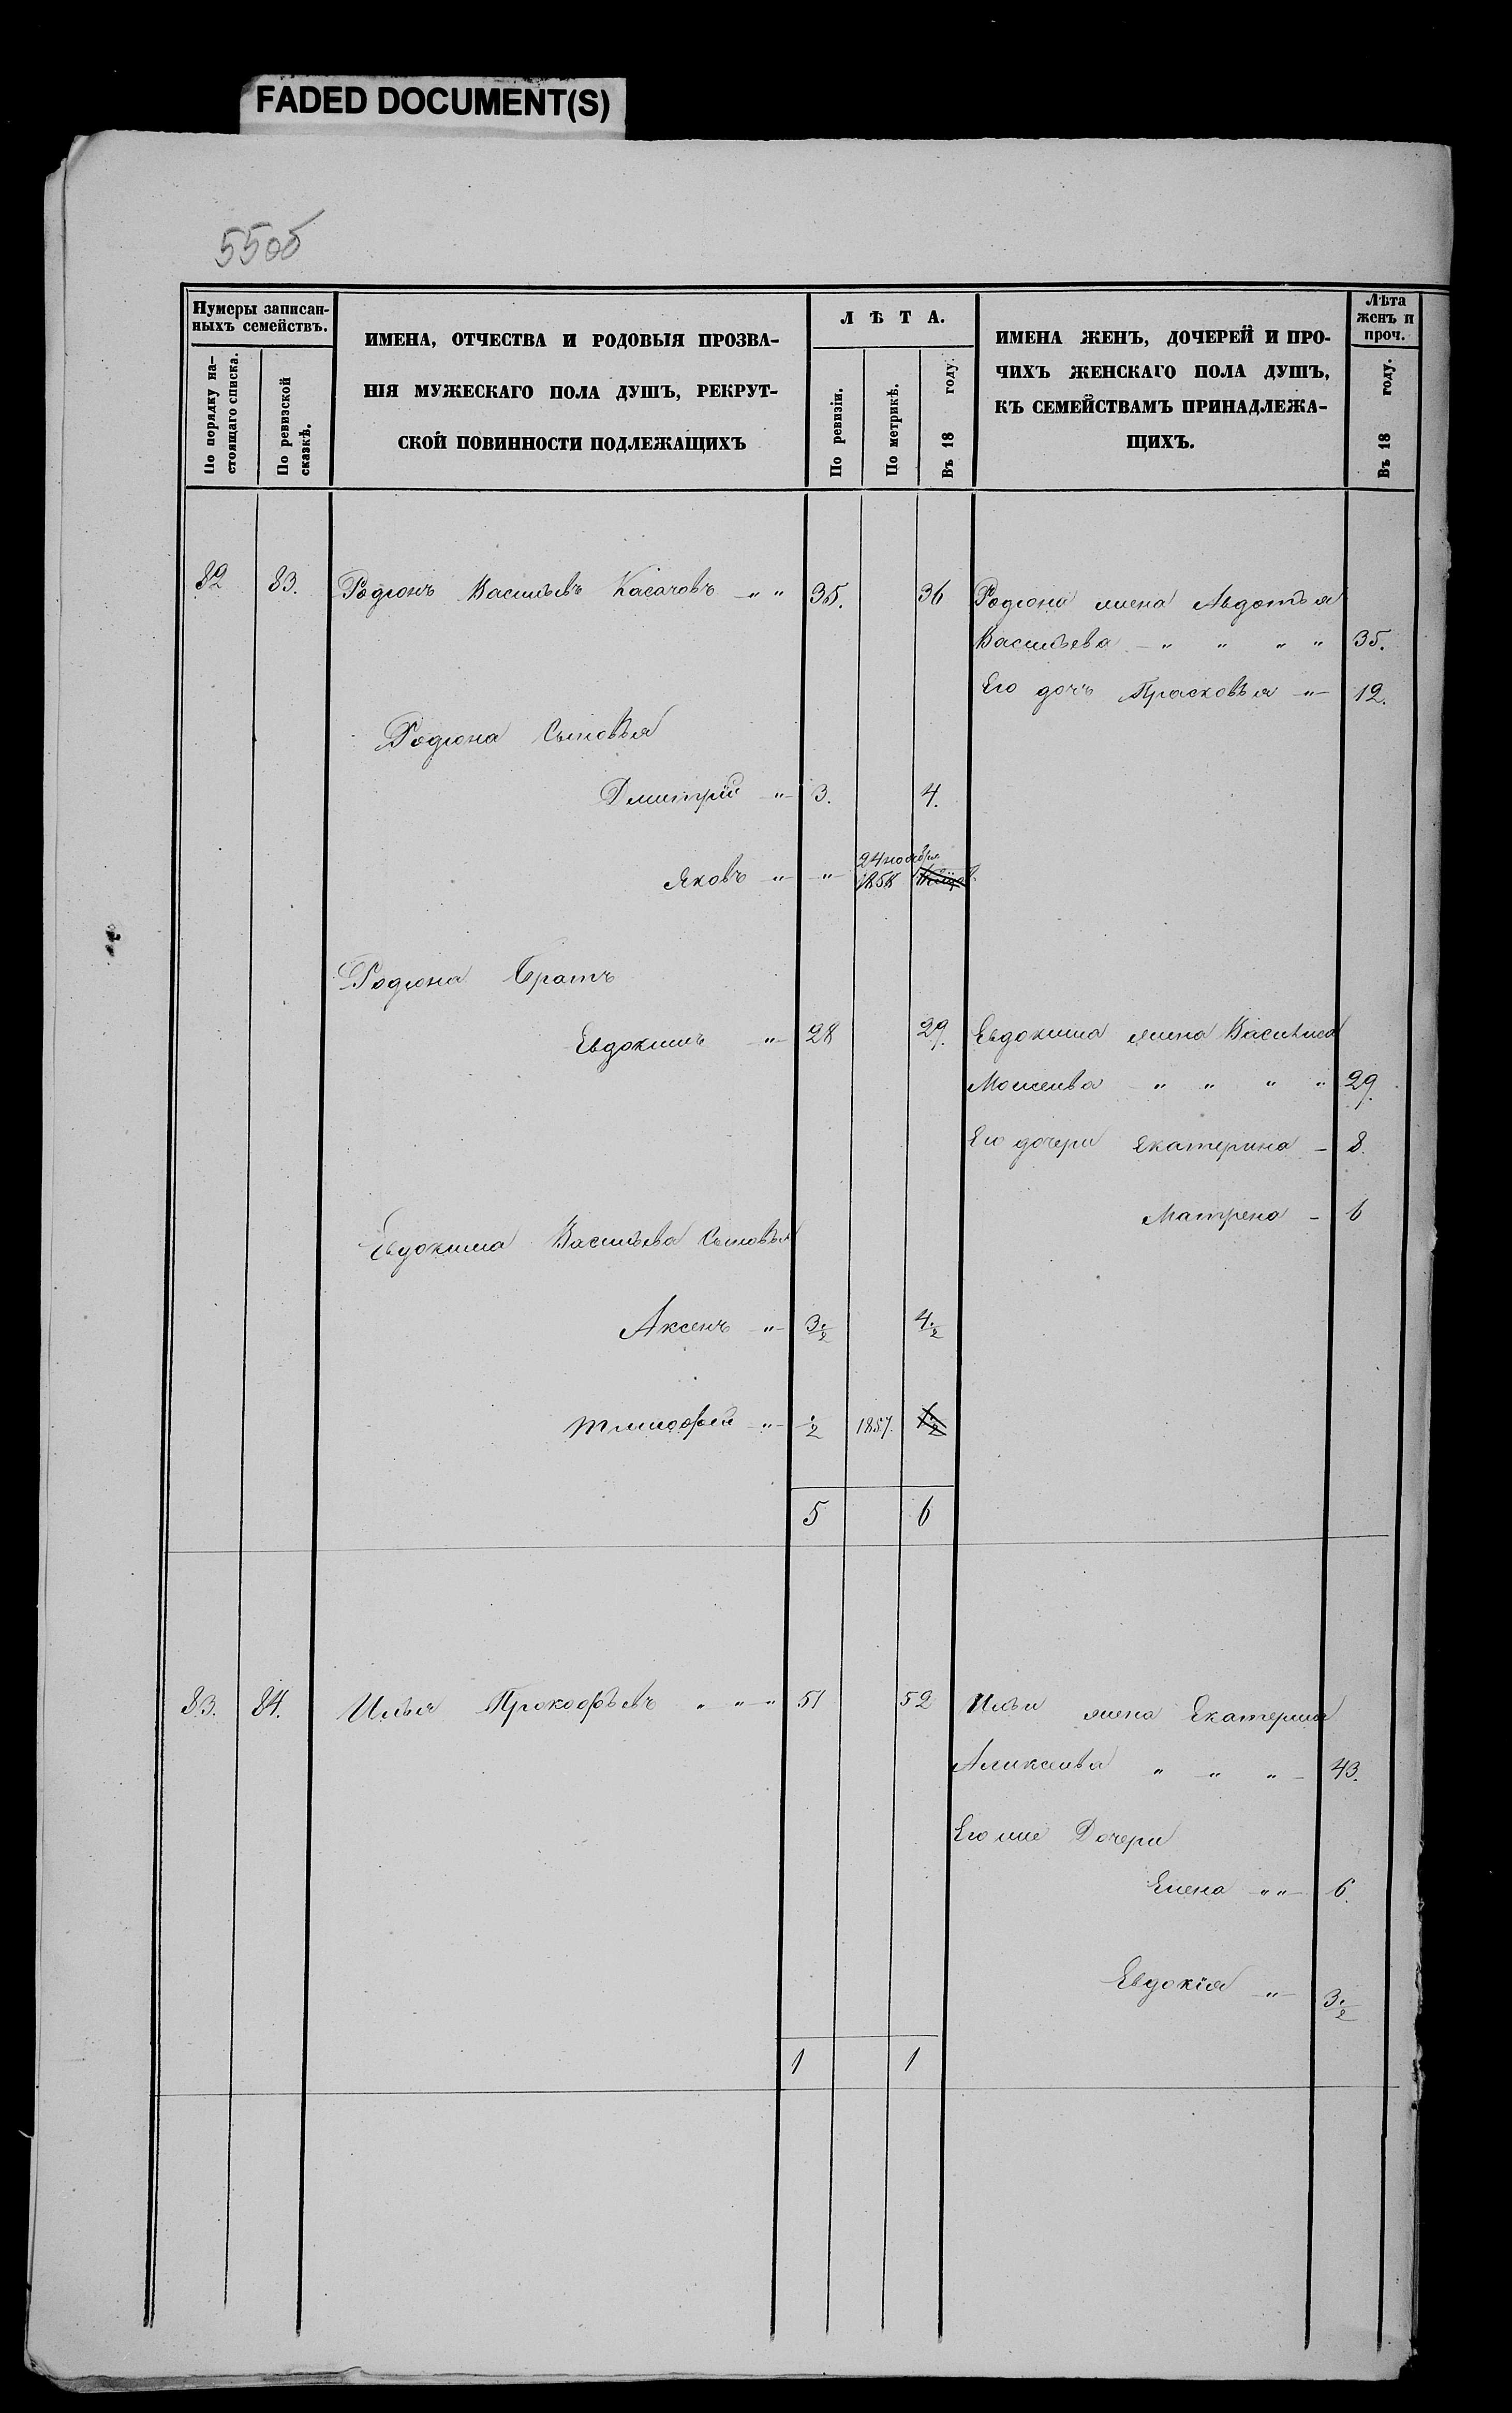 FADED DOCUMENT(S)
55об
Нумеры записан-
ныхъ семействъ.
По порядку на-
стоящаго списка.
По ревизской
сказкѣ.
ИМЕНА, ОТЧЕСТВА И РОДОВЫЯ ПРОЗВА-
НІЯ МУЖЕСКАГО ПОЛА ДУШЪ, РЕКРУТ-
СКОЙ ПОВИННОСТИ ПОДЛЕЖАЩИХЪ
ЛѢТА.
По ревизіи.
По метрикѣ.
Въ 18 году.
ИМЕНА ЖЕНЪ, ДОЧЕРЕЙ И ПРО-
ЧИХЪ ЖЕНСКАГО ПОЛА ДУШЪ,
КЪ СЕМЕЙСТВАМЪ ПРИНАДЛЕЖА-
ЩИХЪ.
Лѣта
женъ и
проч.
Въ 18 году.
82 83. Родіонъ Васильевъ Касачовъ - " " 35. 36 Родіона жена Авдотья
Васильева - " " " " 35.
Его дочь Прасковья "- 12.
Родіона Сыновья
Дмитрій -"- 3. 4.
Яковъ -"- " 24 ноября
1858
Родіона Братъ
Евдокимъ "- 28 29. Евдокима жена Василиса
Моисеева - " " " " 29.
Его дочери Екатерина - 8.
Матрена - 6
Евдокима Васильева Сыновья
Аксенъ "- 3½ 4½
Тимофей -"- ½ 1857. 1½
5 6
83. 84. Илья Прокофьевъ " "-" 51 52 Ильи жена Екатерина
Алексеева " -" "- 43.
Его же Дочери
Елена ""- 6.
Евдокія "- 3½
1 1